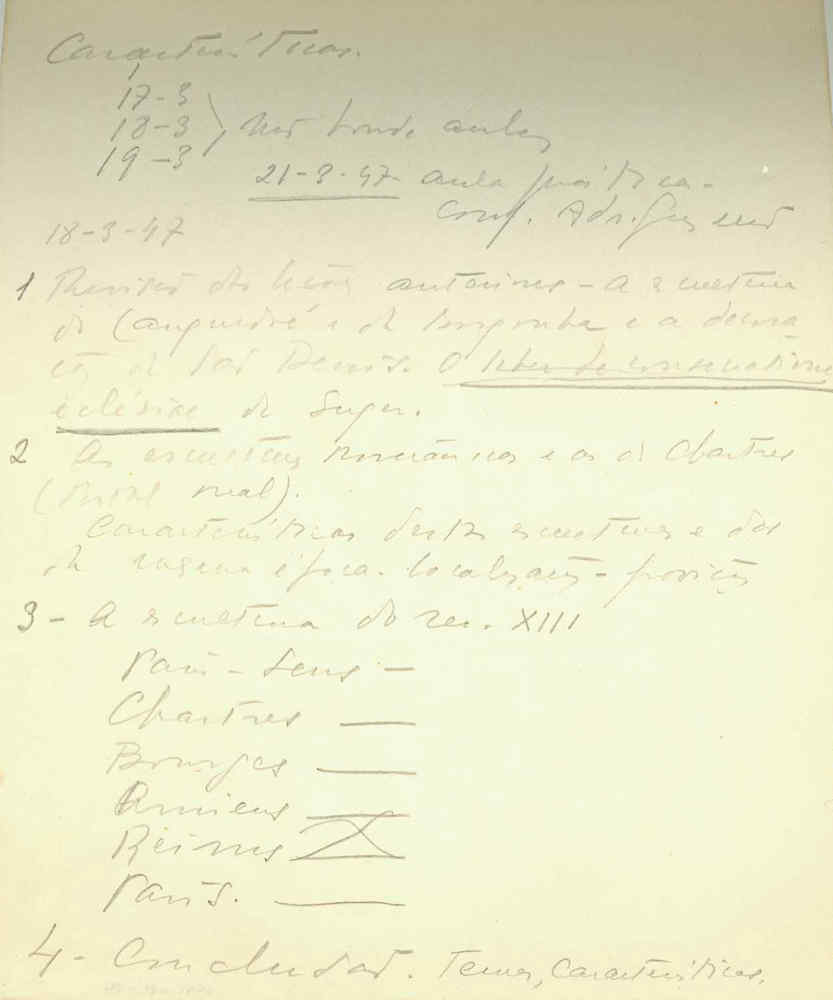 Características.
17-3
18-3
19-3
não houve aulas
21-3-47 aula prática -
Conf. Adr.
18-3-47
1 Revisão da lição anterior - A escultura
do Languedoc e da Borgonha e a decora
ção de São Denis. O liber de consecratione
eclésiae de Suger.
2 As esculturas românicas e as de Chartres
(Portal real).
Características destas esculturas e das
da mesma época. Localização - posição
3 - A escultura do sec. XIII
Paris - Sens -
Chartres —
Bourges —
Amiens —
Reims
Paris. —
4 - Conclusão. Temas, características.